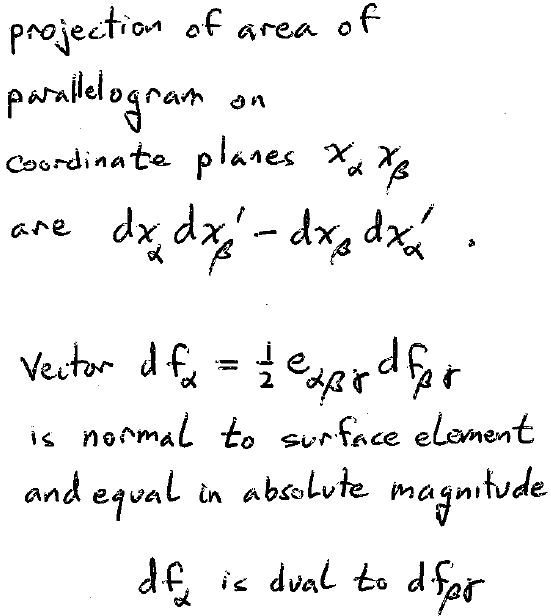 projection of area of
parallelogram on
coordinate planes x_α x_β
are dx_α dx_β' − dx_β dx_α' .
Vector df_α = ½ e_αβγ df_βγ
is normal to surface element
and equal in absolute magnitude
df_α is dual to df_βγ